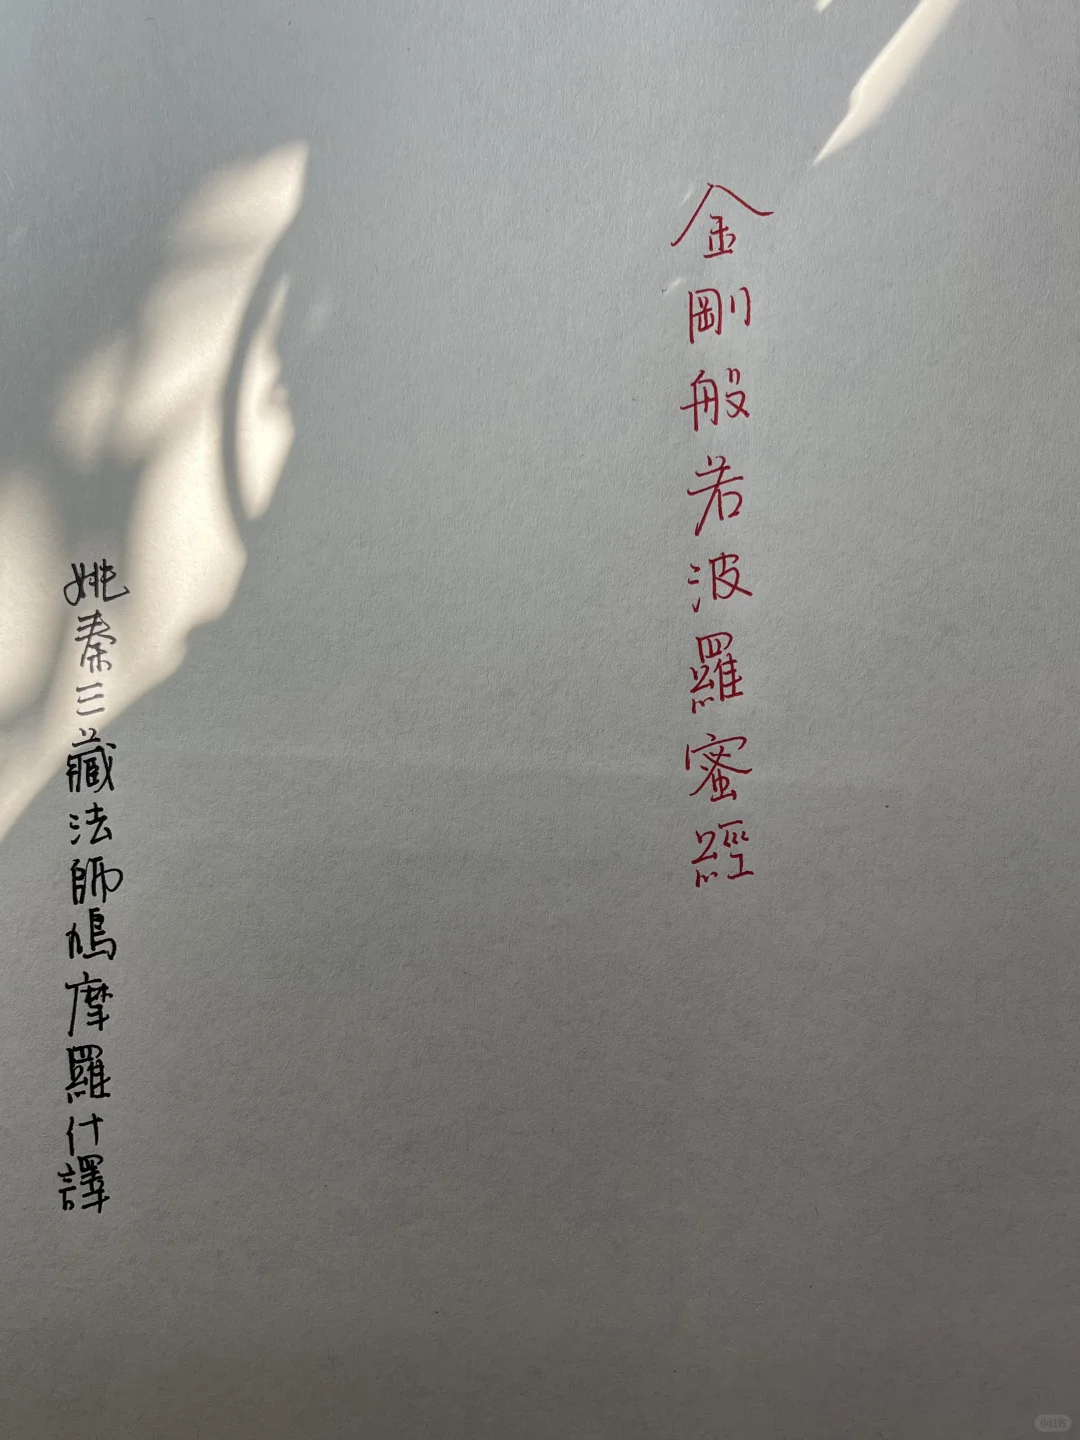 金剛般若波羅蜜經
姚秦三藏法師鳩摩羅什譯
小红书